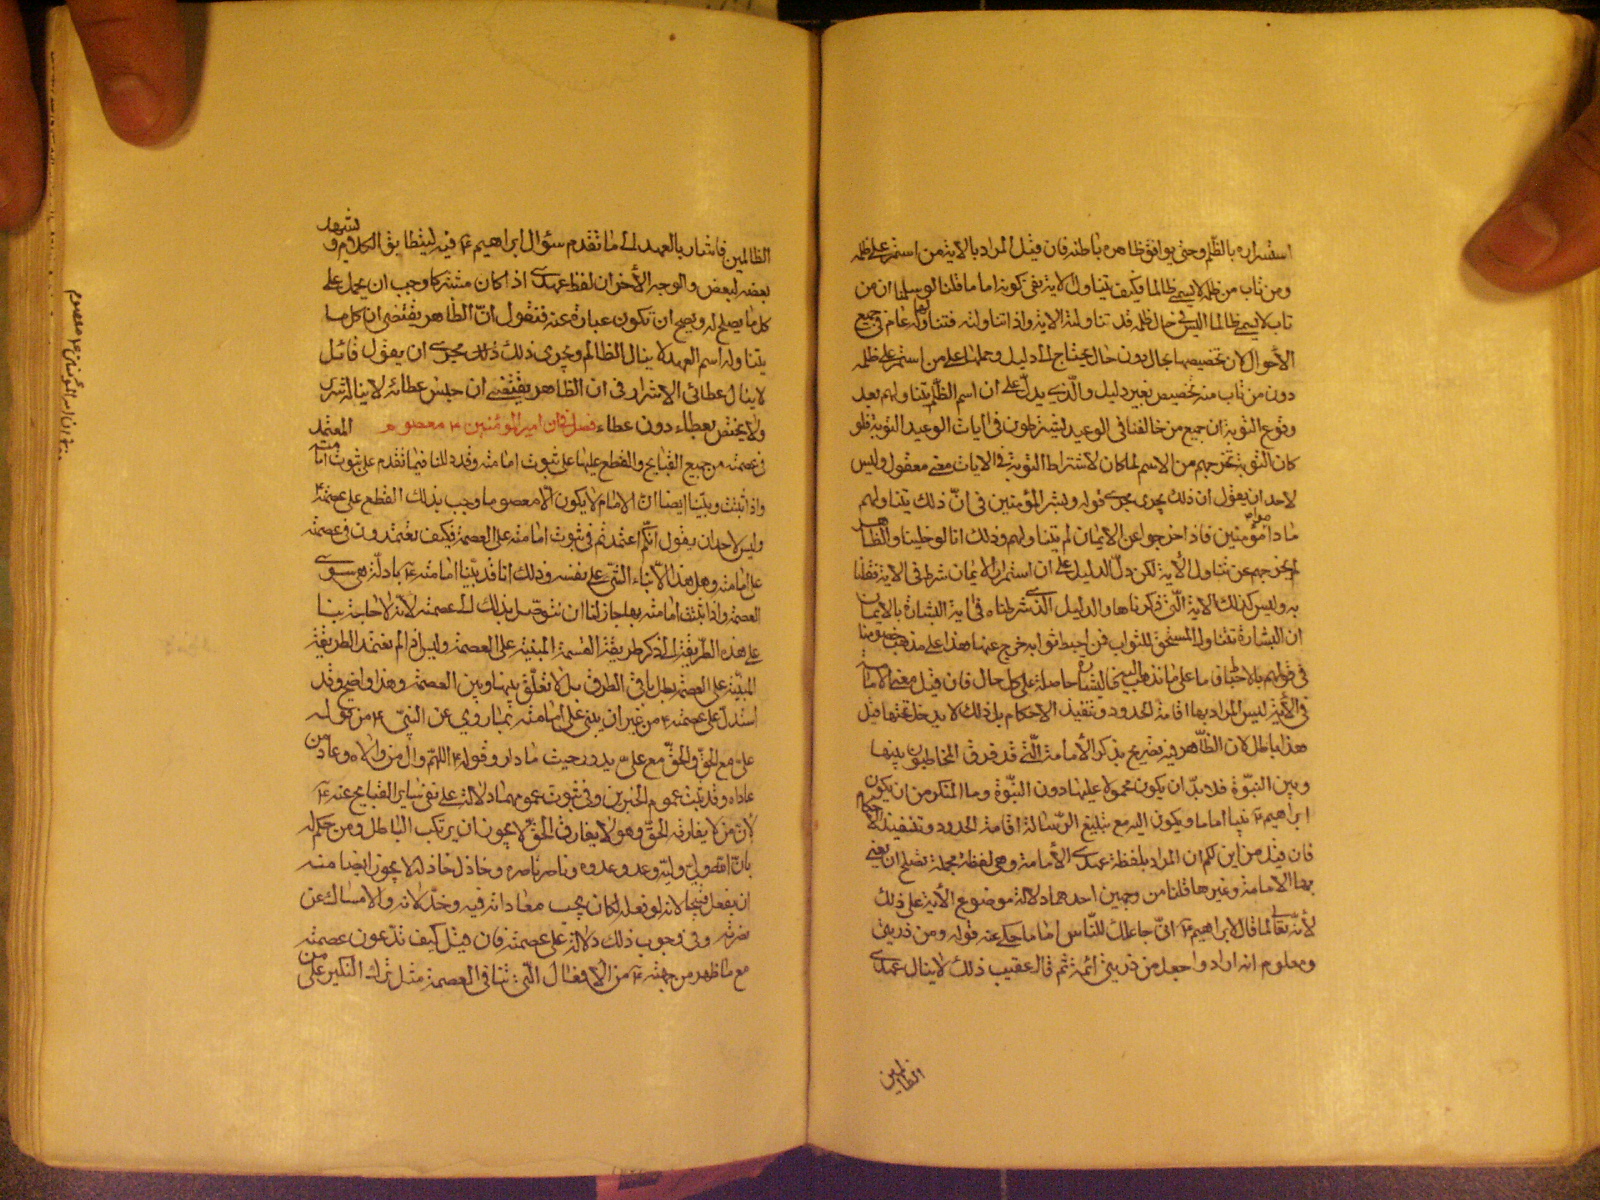 استسراره بالظلم وحتى يوافق ظاهره باطنه فان قيل المراد بالاية من استمر على ظلمه
ومن تاب من ظلمه لا يسمى ظالما فكيف يتناوله الاية بنفي كونه اماما قلنا لو سلمنا ان من
تاب لا يسمى ظالما اليس في حال ظلمه قد تناولته الاية واذا تناولته فتناولها له عام في جميع
الاحوال لان تخصيصها بحال دون حال يحتاج الى دليل وحملها على من استمر على ظلمه
دون من تاب منه تخصيص بغير دليل والّذي يدلّ على ان اسم الظلم يتناولهم بعد
وقوع التوبة ان جميع من خالفنا في الوعيد يشترطون في ايات الوعيد التوبة فلو
كان التوبة تخرجهم من الاسم لما كان لاشتراط التوبة في الايات معنى معقول وليس
لاحد ان يقول ان ذلك يجري مجرى قوله وبشر المؤمنين في انّ ذلك يتناولهم
ما داموا مؤمنين فاذا خرجوا عن الايمان لم يتناولهم وذلك انا لو خلينا والظاهر
لم نخرجهم عن تناول الاية لكن دلّ الدليل على ان استمرار الايمان شرط في الاية فقلنا
به وليس كذلك الاية الّتي ذكرناها والدليل الّذي شرطناه في اية البشارة بالايمان
ان البشارة تتناول المستحق للثواب فمن احبط ثوابه خرج عنها هذا على مذهب خصومنا
في قولهم بالاحباط فاما على ما نذهب اليه فالبشارة حاصلة على كل حال فان قيل معنى الامامة
في الاية ليس المراد بها اقامة الحدود وتنفيذ الاحكام بل ذلك لا يدخل تحتها قيل
هذا باطل لان الظّاهر فيه تصريح بذكر الامامة الّتي قد فرق المخاطبون بينها
وبين النبوّة فلا بدّ ان يكون محمولا عليها دون النبوّة وما المنكر من ان يكون
ابراهيم ع نبيا اماما ويكون اليه مع تبليغ الرّسالة اقامة الحدود وتنفيذ الاحكام
فان قيل من اين لكم ان المراد بلفظة عهدي الامامة وهي لفظة مجملة تصلح ان يعني
بها الامامة وغيرها قلنا من وجهين احدهما دلالة موضوع الاية على ذلك
لأنّه تعالى لما قال لابراهيم ع انّي جاعلك للنّاس اماما حكى عنه قوله ومن ذريتي
ومعلوم انه اراد واجعل من ذريتي ائمة ثم قال عقيب ذلك لا ينال عهدي
الظالمين
الظالمين فاشار بالعهد الى ما تقدم سؤال ابراهيم ع فيه ليتطابق الكلام ويشهد
بعضه لبعض والوجه الأخر ان لفظ عهدي اذا كان مشتركا وجب ان يحمل على
كل ما يصلح له ويصح ان تكون عبارة عنه فنقول انّ الظاهر يقتضي ان كل ما
يتناوله اسم العهد لا ينال الظالم ويجري ذلك مجرى ان يقول قائل
لا ينال عطائي الاشرار في ان الظاهر يقتضي ان جنس عطائه لا يناله شرير
ولا يختص بعطاء دون عطاء فصل في ان امير المؤمنين ع معصوم المعتمد
في عصمته من جميع القبايح والقطع عليها على ثبوت امامته وقد دللنا فيما تقدم على ثبوت امامته
واذا ثبتت وبيّنا ايضا انّ الامام لا يكون الّا معصوما وجب بذلك القطع على عصمته ع
وليس لاحد ان يقول انّكم اعتمدتم في ثبوت امامته على العصمة فكيف تعتمدون في عصمته
على امامته وهل هذا الّا بناء الشّيء على نفسه وذلك انا قد بيّنا امامته ع بادلّة هي سوى
العصمة واذا ثبتت امامته بها جاز لنا ان نتوصّل بذلك الى عصمته لانه لا حاجة بنا
على هذه الطريقة الى ذكر طريقة القسمة المبنيّة على العصمة وليس اذا لم نعتمد الطريقة
المبنيّة على العصمة بطل باقي الطرق بل لا تعلّق بينها وبين العصمة وهذا واضح وقد
استدلّ على عصمته ع من غير ان يبنى على امامته بما روي عن النّبيّ ع من قوله
عليّ مع الحقّ والحقّ مع عليّ يدور حيث ما دار وقوله ع اللّهمّ وال من والاه وعاد من
عاداه وقد ثبت عموم الخبرين وفي ثبوت عمومهما دلالة على نفي سائر القبايح عنه ع
لانّ من لا يفارقه الحقّ وهو لا يفارق الحقّ لا يجوز ان يرتكب الباطل ومن حكم له
بانّ الله وليّ وليّه وعدو عدوه وناصر ناصره وخاذل خاذله لا يجوز ايضا منه
ان يفعل قبيحا لانه لو فعله لكان يجب معاداته فيه وخذلانه والامساك عن
نصرته وفي وجوب ذلك دلالة على عصمته فان قيل كيف تدّعون عصمته
مع ما ظهر من جهته ع من الافعال الّتي تنافي العصمة مثل ترك النكير على من